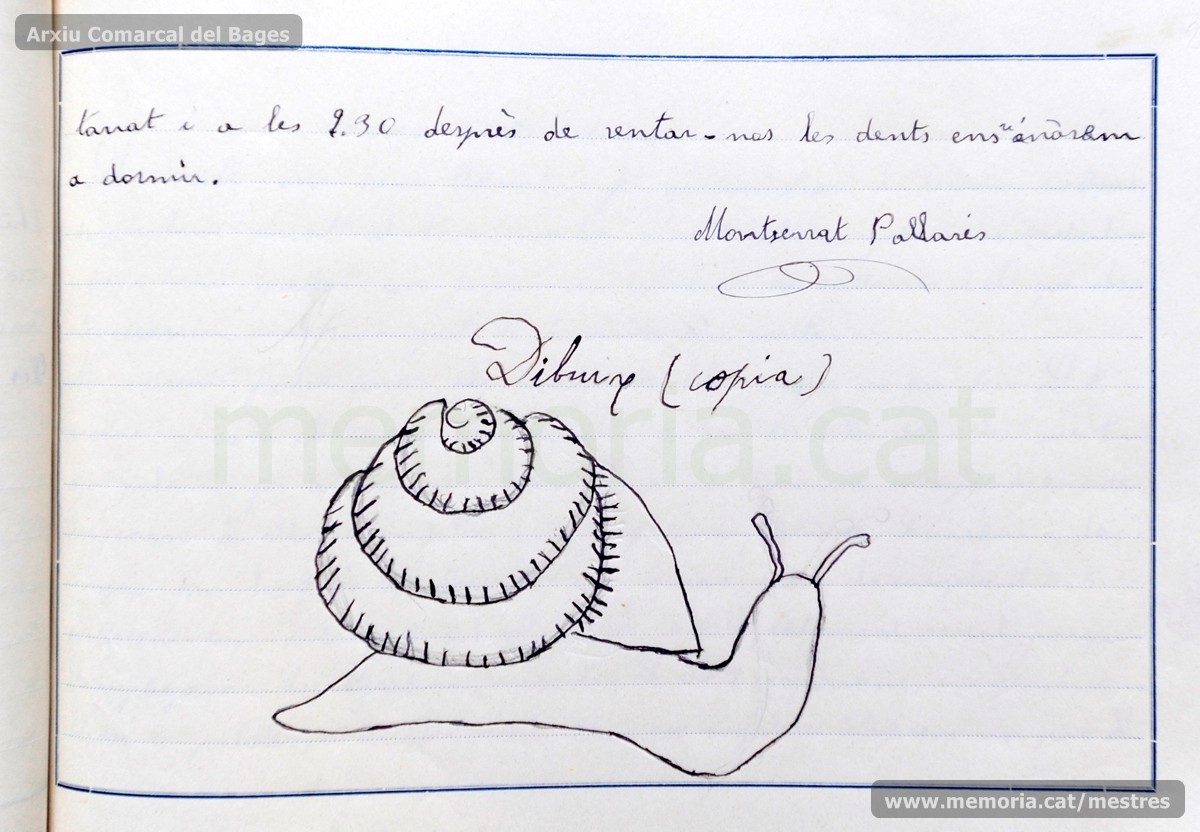 Arxiu Comarcal del Bages
tarrat i a les 9.30 desprès de rentar-nos les dents ens en ánàrem
a dormir.
Montserrat Pallarés
Dibuix (copia)
memoria.cat
www.memoria.cat/mestres